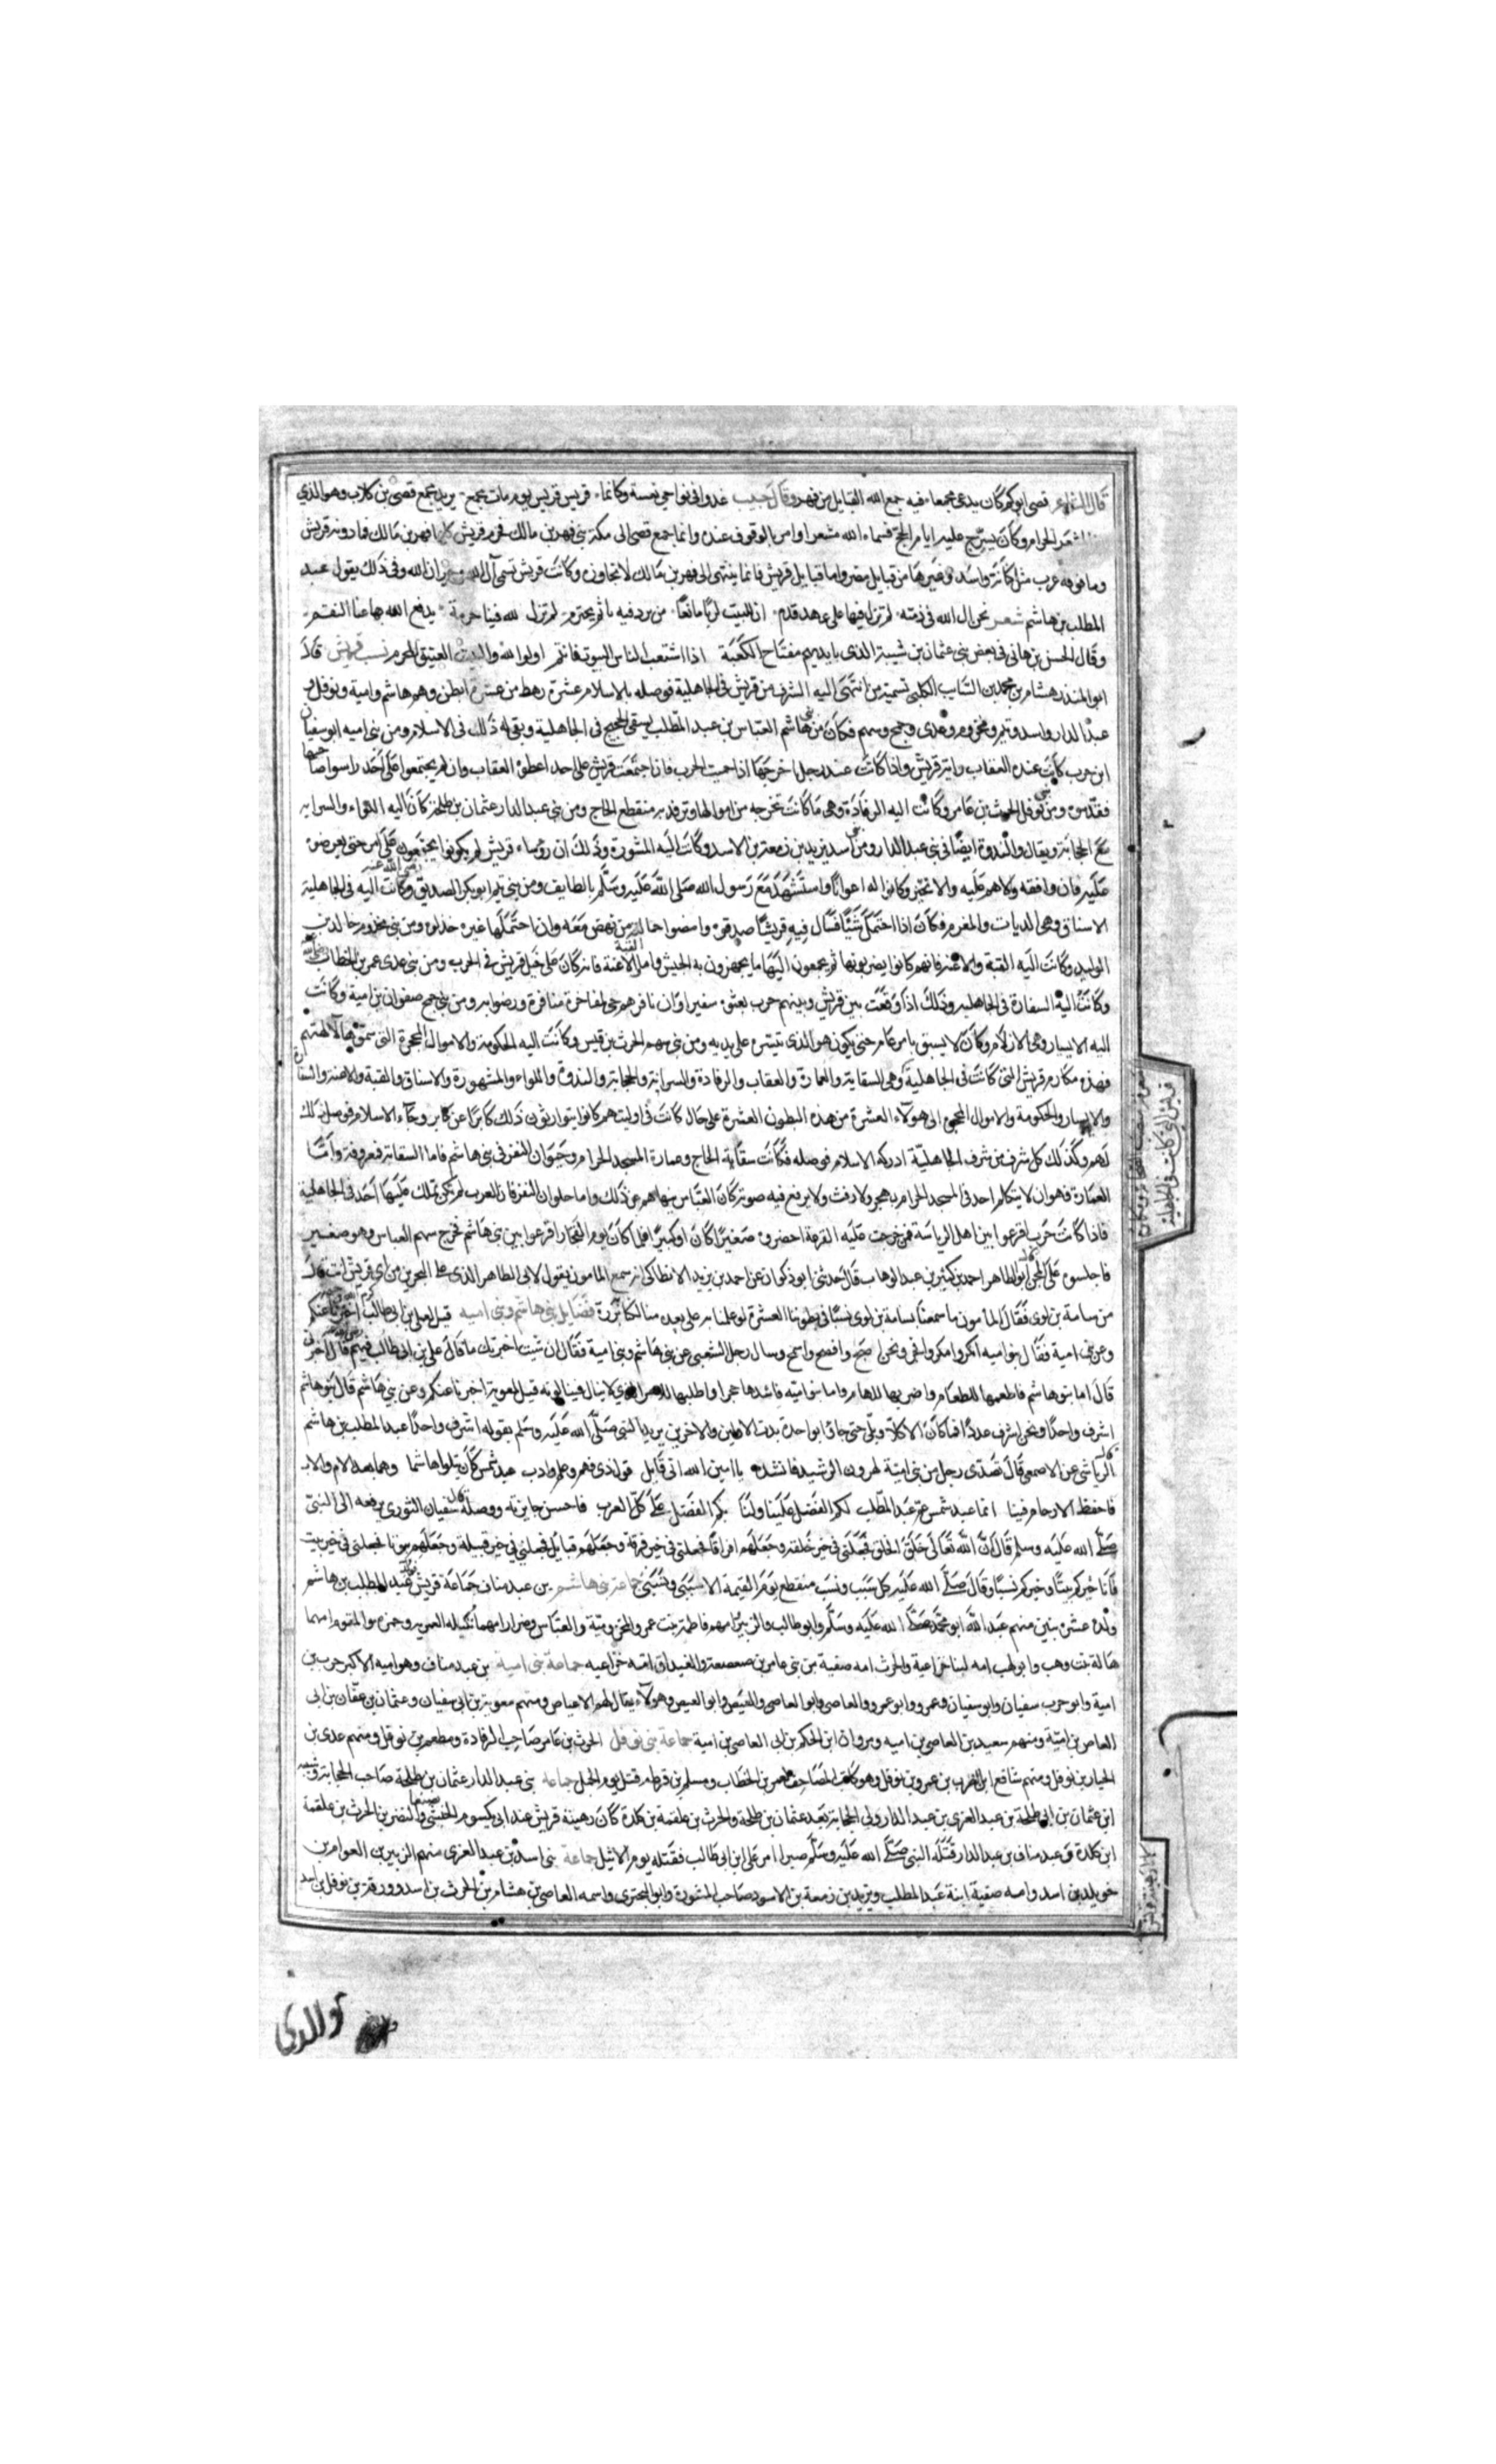 قال الشاعر قصي ابوكم كان يدعى مجمعا فيه جمع الله القبايل من فهر وقال حبيب غدوا في نواحي نعشه وكانما قريش قريش يوم مات مجمع يريد مجمع قصي بن كلاب وهو الذي
المشعر الحرام وكان يسرج عليه ايام الحج فسماه الله مشعرا وامر بالوقوف عنده وانما جمع قصي الى مكة بني فهر بن مالك فجرم قريش فهر بن مالك فما دونه قريش
وما فوقه عرب مثل كنانة واسد وغيرها من قبايل مضر واما قبايل قريش فانما ينتهى الى فهر بن مالك لا تجاوزه وكانت قريش تسمى آل الله وجيران الله وفي ذلك يقول عبد
المطلب بن هاشم شعر نحن ال الله في ذمته لم نزل فيها على عهد قدم ان للبيت لربا مانعا من يرد فيه باثم يخترم لم تزل لله فينا حرمة يدفع الله بها عنا النقم
وقال الحسن بن هانى في بعض بني عثمان بن شيبة الذي بايديهم مفتاح الكعبة اذا اشتعب الناس البيوت فانتم اولوا الله والبيت العتيق المحرم نسب قريش قال
ابو المنذر هشام بن محمد بن السايب الكلبي تسمية من انتهى اليه الشرف من قريش في الجاهلية فوصله بالاسلام عشرة رهط من عشرة ابطن وهم هاشم وامية ونوفل و
عبد الدار واسد وتيم ومخزوم وعدى وجمح وسهم فكان من بني هاشم العباس بن عبد المطلب يسقي الحجيج في الجاهلية وبقي له ذلك في الاسلام ومن بني اميه ابو سفيان
ابن حرب كانت عنده العقاب راية قريش واذا كانت عند رجل اخرجها اذا حميت الحرب فاذا اجتمعت قريش على احد اعطوه العقاب وان لم يجتمعوا على احد راسوا صاحبها
فقدموه ومن بني نوفل الحرث بن عامر وكانت اليه الرفادة وهي ما كانت تخرجه من اموالها وترفد به منقطع الحاج ومن بني عبد الدار عثمان بن طلحة كان اليه اللواء والسدانة
مع الحجابة ويقال والندوة ايضا في بني عبد الدار ومن بني اسد يزيد بن زمعة بن الاسود وكانت اليه المشورة وذلك ان رؤساء قريش لم يكونوا يجتمعون على امر حتى يعرضوه
عليه فان وافقه ولاهم عليه والا تخير وكانوا له اعوانا واستشهد مع رسول الله صلى الله عليه وسلم بالطايف ومن بني تيم ابو بكر الصديق رضي الله عنه وكانت اليه في الجاهلية
الاشناق وهي الديات والمغرم فكان اذا احتمل شيئا فسال فيه قريشا صدقوه وامضوا حمالة من نهض معه وان احتملها غيره خذلوه ومن بني مخزوم خالد بن
الوليد وكانت اليه القبة والاعنة فاما القبة فانهم كانوا يضربونها ثم يجمعون اليها ما يجهزون به الجيش واما الاعنة فانه كان على خيل قريش في الحرب ومن بني عدى عمر بن الخطاب رضي الله عنه
وكانت اليه السفارة في الجاهليه وذلك اذا وقعت بين قريش وبينهم حرب بعثوه سفيرا وان نافرهم حي لمفاخرة منافرة ورضوا به ومن بني جمح صفوان بن امية وكانت
اليه الايسار وهي الازلام وكان لا يسبق بامر عام حتى يكون هو الذى تيسره على يديه ومن بني سهم الحرث بن قيس وكانت اليه الحكومة والاموال المحجرة التي سموها لآلهتهم
فهذه مكارم قريش التي كانت في الجاهلية وهي السقاية والعمارة والعقاب والرفادة والسدانة والحجابة والندوة واللواء والمشورة والاشناق والقبة والاعنة والسفارة
والايسار والحكومة والاموال المحجرة الى هؤلاء العشرة من هذه البطون العشرة على حال كانت في اوليتهم كانوا يتوارثون ذلك كابرا عن كابر وجاء الاسلام فوصل ذلك
لهم وكذلك كل شرف من شرف الجاهلية ادركه الاسلام فوصله فكانت سقاية الحاج وعمارة المسجد الحرام وحلوان النفر في بني هاشم فاما السقاية فمعروفة واما
العمارة فهو ان لا يتكلم احد في المسجد الحرام بهجر ولا رفث ولا يرفع فيه صوته كان العباس ينهاهم عن ذلك واما حلوان النفر فان العرب لم تكن تملك عليها احد في الجاهلية
فاذا كانت حرب اقرعوا بين اهل الرياسة فمن خرجت عليه القرعة احضروه صغيرا كان او كبيرا فلما كان يوم الفجار اقرعوا بين بني هاشم فخرج سهم العباس وهو صغير
فاجلسوه على المجن قال ابو الطاهر احمد بن كثير بن عبد الوهاب قال حدثني ابو ذكوان عن احمد بن يزيد الانطاكي انه سمع المامون يقول لابي الطاهر الذي على البحرين من اي قريش انت قال
من سامة بن لوى فقال المأمون ما سمعنا بسامة بن لوى نسبا في بطوننا العشرة لو علمنا به على بعده منا لكنا بررة فضايل بني هاشم وبني اميه قيل لعلي بن ابي طالب اخبرنا عنكم
وعن بني امية فقال بنو اميه انكر وامكر وافجر ونحن اصبح وافصح واسمح وسال رجل الشعبي عن بني هاشم وبني امية فقال ان شيت اخبرتك ما قال علي بن ابي طالب فيهم قال اخبرني
قال اما بنو هاشم فاطعمها للطعام واضربها للهام واما بنو امية فاشدها حجرا واطلبها للامر الذي لا ينال فينالونه قيل لمعوية اخبرنا عنكم وعن بني هاشم قال بنو هاشم
اشرف واحدا ونحن اشرف عددا فما كان الا كلا وبلى حتى جاؤا بواحدة بذت الاولين والاخرين يريد النبي صلى الله عليه وسلم بقوله اشرف واحدا عبد المطلب بن هاشم
قال الرياشي عن الاصمعي قال تصدى رجل من بني امية لهرون الرشيد فانشده يا امين الله اني قايل قول ذي فهم وعلم وادب عبد شمس كان يتلو هاشما وهما بعد لام ولاب
فاحفظ الارحام فينا انما عبد شمس عم عبد المطلب لكم الفضل علينا ولنا بكم الفضل على كل العرب فاحسن جايزته ووصله قال سفيان الثوري يرفعه الى النبي
صلى الله عليه وسلم قال ان الله تعالى خلق الخلق فجعلني في خير خلقه وجعلهم افراقا فجعلني في خير فرقة وجعلهم قبايل فجعلني في خير قبيلة وجعلهم بيوتا فجعلني في خير بيت
فانا خيركم بيتا وخيركم نسبا وقال صلى الله عليه كل سبب ونسب منقطع يوم القيمة الا سببي ونسبي جماعة بني هاشم بن عبد مناف جماعة قريش عبد المطلب بن هاشم
ولده عشرة بنين منهم عبد الله ابو محمد صلى الله عليه وسلم وابو طالب والزبير امهم فاطمة بنت عمرو المخزومية والعباس وضرار امهما نتيلة العمريه وحمزه والمقوم امهما
هالة بنت وهب وابو لهب امه لبنا خزاعية والحرث امه صفية من بني عامر بن صعصعة والغيداق امه خزاعيه جماعة بني امية بن عبد مناف وهو اميه الاكبر حرب بن
امية وابو حرب سفيان وابو سفيان وعمرو وابو عمرو والعاصي وابو العاصي والعيص وابو العيص وهؤلاء يقال لهم الاعياص ومنهم معوية بن ابي سفيان وعثمان بن عفان بن ابي
العاص بن امية ومنهم سعيد بن العاصي بن اميه ومروان ابن الحكم بن ابي العاصي بن امية جماعة بني نوفل الحرث بن عامر صاحب الرفادة ومطعم بن نوفل ومنهم عدى بن
الخيار بن نوفل ومنهم شافع ابن ظرب بن عمرو بن نوفل وهو كاتب المصاحف لعمر بن الخطاب ومسلم بن قرظه قتل يوم الجمل جماعة بني عبد الدار عثمان بن طلحة صاحب الحجابة وشيبه
ابن عثمان بن ابي طلحة بن عبد العزى بن عبد الدار ولي الحجابة بعد عثمان بن طلحة والحرث بن علقمة بن كلدة كان رهينة قريش عند ابي يكسوم الحبشي والنضر بن الحرث بن علقمة
ابن كلدة بن عبد مناف بن عبد الدار قتله النبي صلى الله عليه وسلم صبرا امر علي ابن ابي طالب فقتله يوم الاثيل جماعة بني اسد بن عبد العزى منهم الزبير بن العوام بن
خويلد بن اسد وامه صفية ابنة عبد المطلب ويزيد بن زمعة بن الاسود صاحب المشورة وابو البختري واسمه العاصي بن هشام بن الحرث بن اسد وورقة بن نوفل بن اسد
قريش التي كانت في الجاهلية